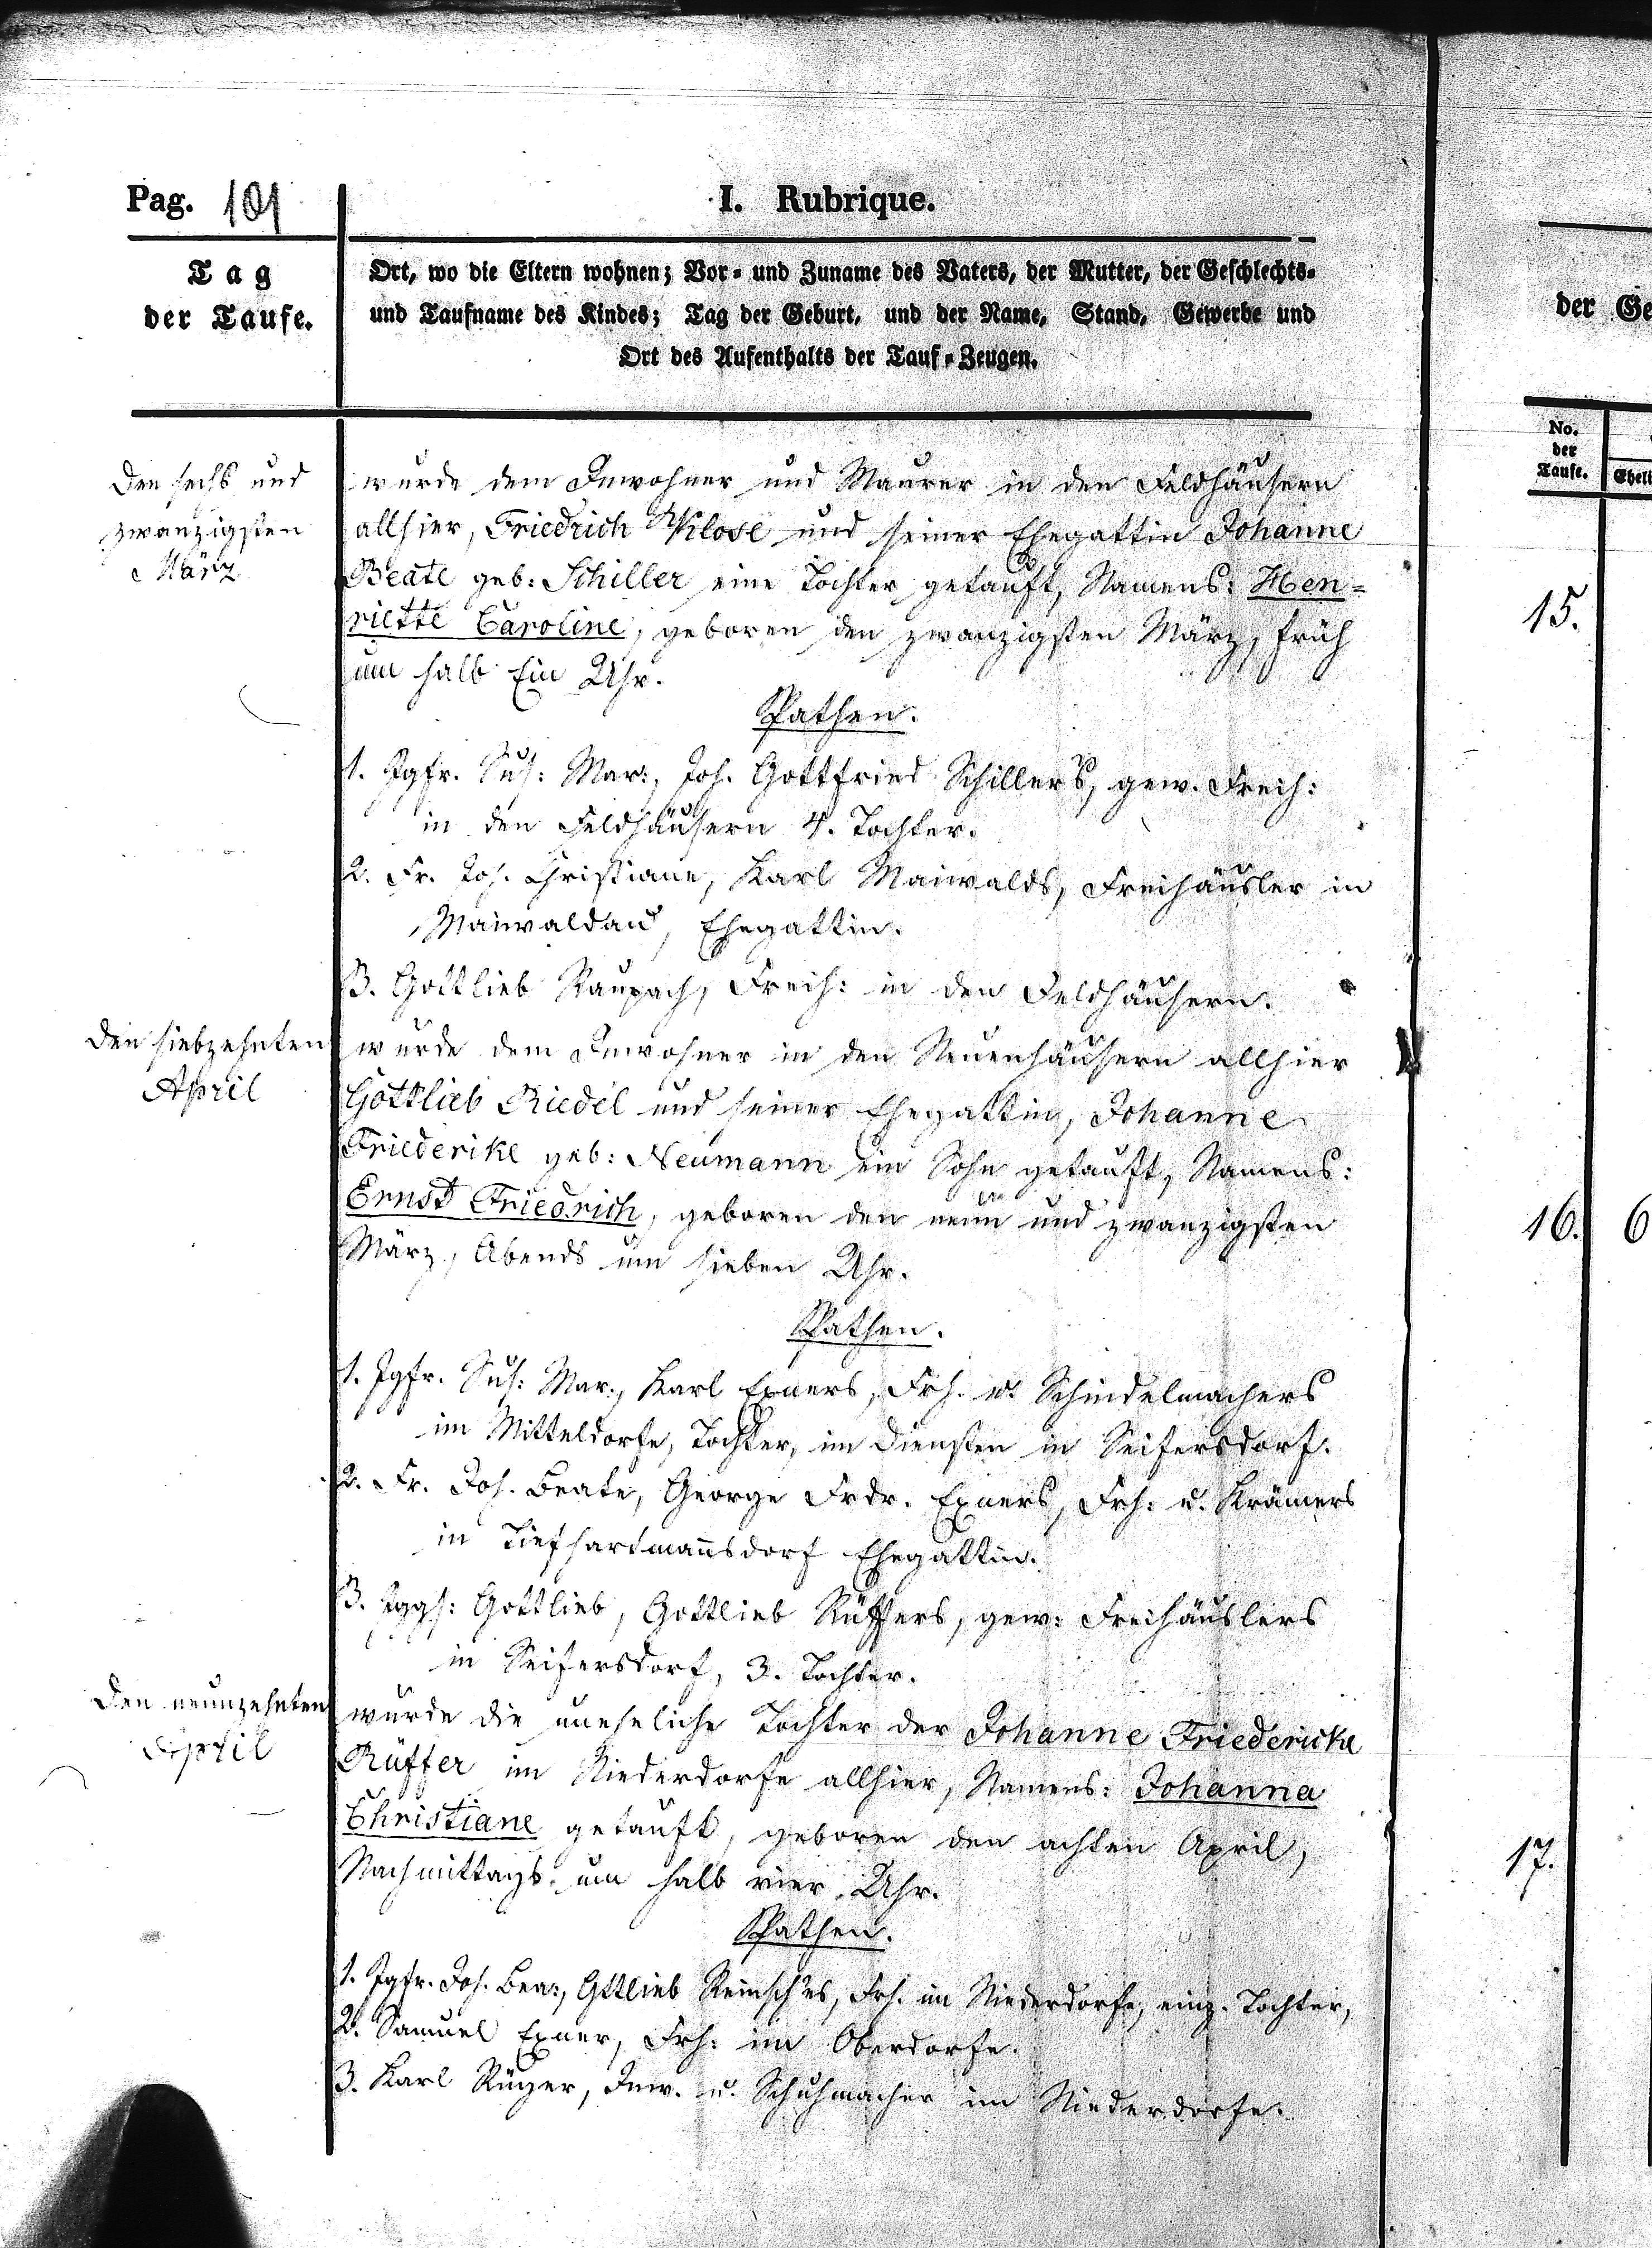 Pag. 101
I. Rubrique.
Tag
der Taufe.
Ort, wo die Eltern wohnen; Vor- und Zuname des Vaters, der Mutter, der Geschlechts-
und Taufname des Kindes; Tag der Geburt, und der Name, Stand, Gewerbe und
Ort des Aufenthalts der Tauf-Zeugen.
Den sechs und
zwanzigsten
März
wurde dem Inwohner und Maurer in den Feldhäusern
allhier, Friedrich Klose und seiner Ehegattin Johanne
Beate geb: Schiller eine Tochter getauft, Namens: Hen-
riette Caroline, geboren den zwanzigsten März, früh
um halb Ein Uhr.
Pathen.
1. Jgfr. Sus: Mar:, Joh. Gottfried Schillers, gew. Freih:
in den Feldhäusern 4. Tochter.
2. Fr. Joh. Christiane, Karl Maiwalds, Freihäusler in
Maiwaldau, Ehegattin.
3. Gottlieb Raupach, Freih: in den Feldhäusern.
Den siebzehnten
April
wurde dem Inwohner in den Neuenhäusern allhier
Gottlieb Riedel und seiner Ehegattin, Johanne
Friederike geb: Neumann ein Sohn getauft, Namens:
Ernst Friedrich, geboren den neun und zwanzigsten
März, Abends um sieben Uhr.
Pathen.
1. Jgfr. Sus: Mar:, Karl Exners, Frh. u. Schindelmachers
im Mitteldorfe, Tochter, im Diensten in Seifersdorf.
2. Fr. Joh. Beate, George Frdr. Exners, Frh: u. Krämers
in Tiefhartmannsdorf Ehegattin.
3. Jggs: Gottlieb, Gottlieb Rüffers, gew: Freihäuslers
in Seifersdorf, 3. Tochter.
Den neunzehnten
April
wurde die uneheliche Tochter der Johanne Friedericke
Rüffer im Niederdorfe allhier, Namens: Johanna
Christiane getauft, geboren den achten April,
Nachmittags um halb vier Uhr.
Pathen.
1. Jgfr. Joh. Bea:, Gttlieb Reinsch'es, Frh. im Niederdorfe, einz. Tochter,
2. Samuel Exner, Frh: im Oberdorfe.
3. Karl Inw. u. Schuhmacher im Niederdorfe.
der Ge
No.
der
Taufe.
Eheli
15.
16. 6
17.